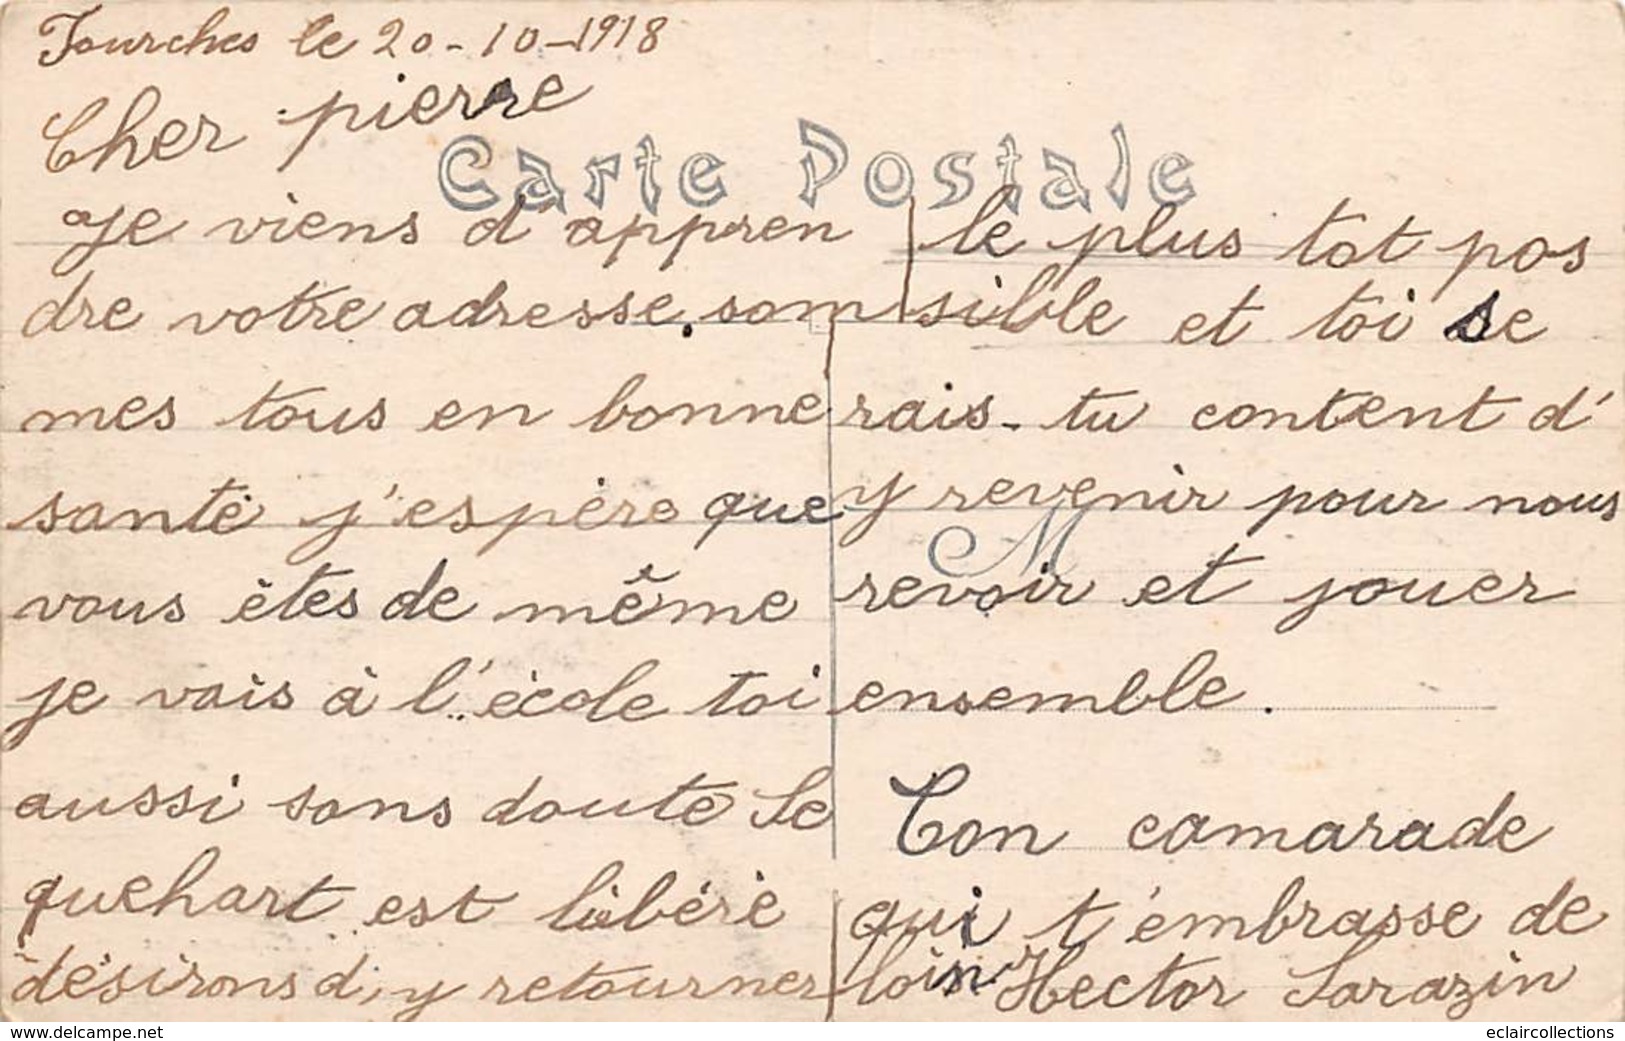 Fourches le 20-10-1918
Cher pierre
Carte Postale
Je viens d'appren
dre votre adresse. som
mes tous en bonne
santé j'espère que
vous êtes de même
je vais à l'école toi
aussi sans doute Se
quehart est libéré
désirons d'y retourner
le plus tot pos
sible et toi se
rais-tu content d'
y revenir pour nous
revoir et jouer
ensemble.
Ton camarade
qui t'embrasse de
loin Hector Sarazin
www.delcampe.net
eclaircollections